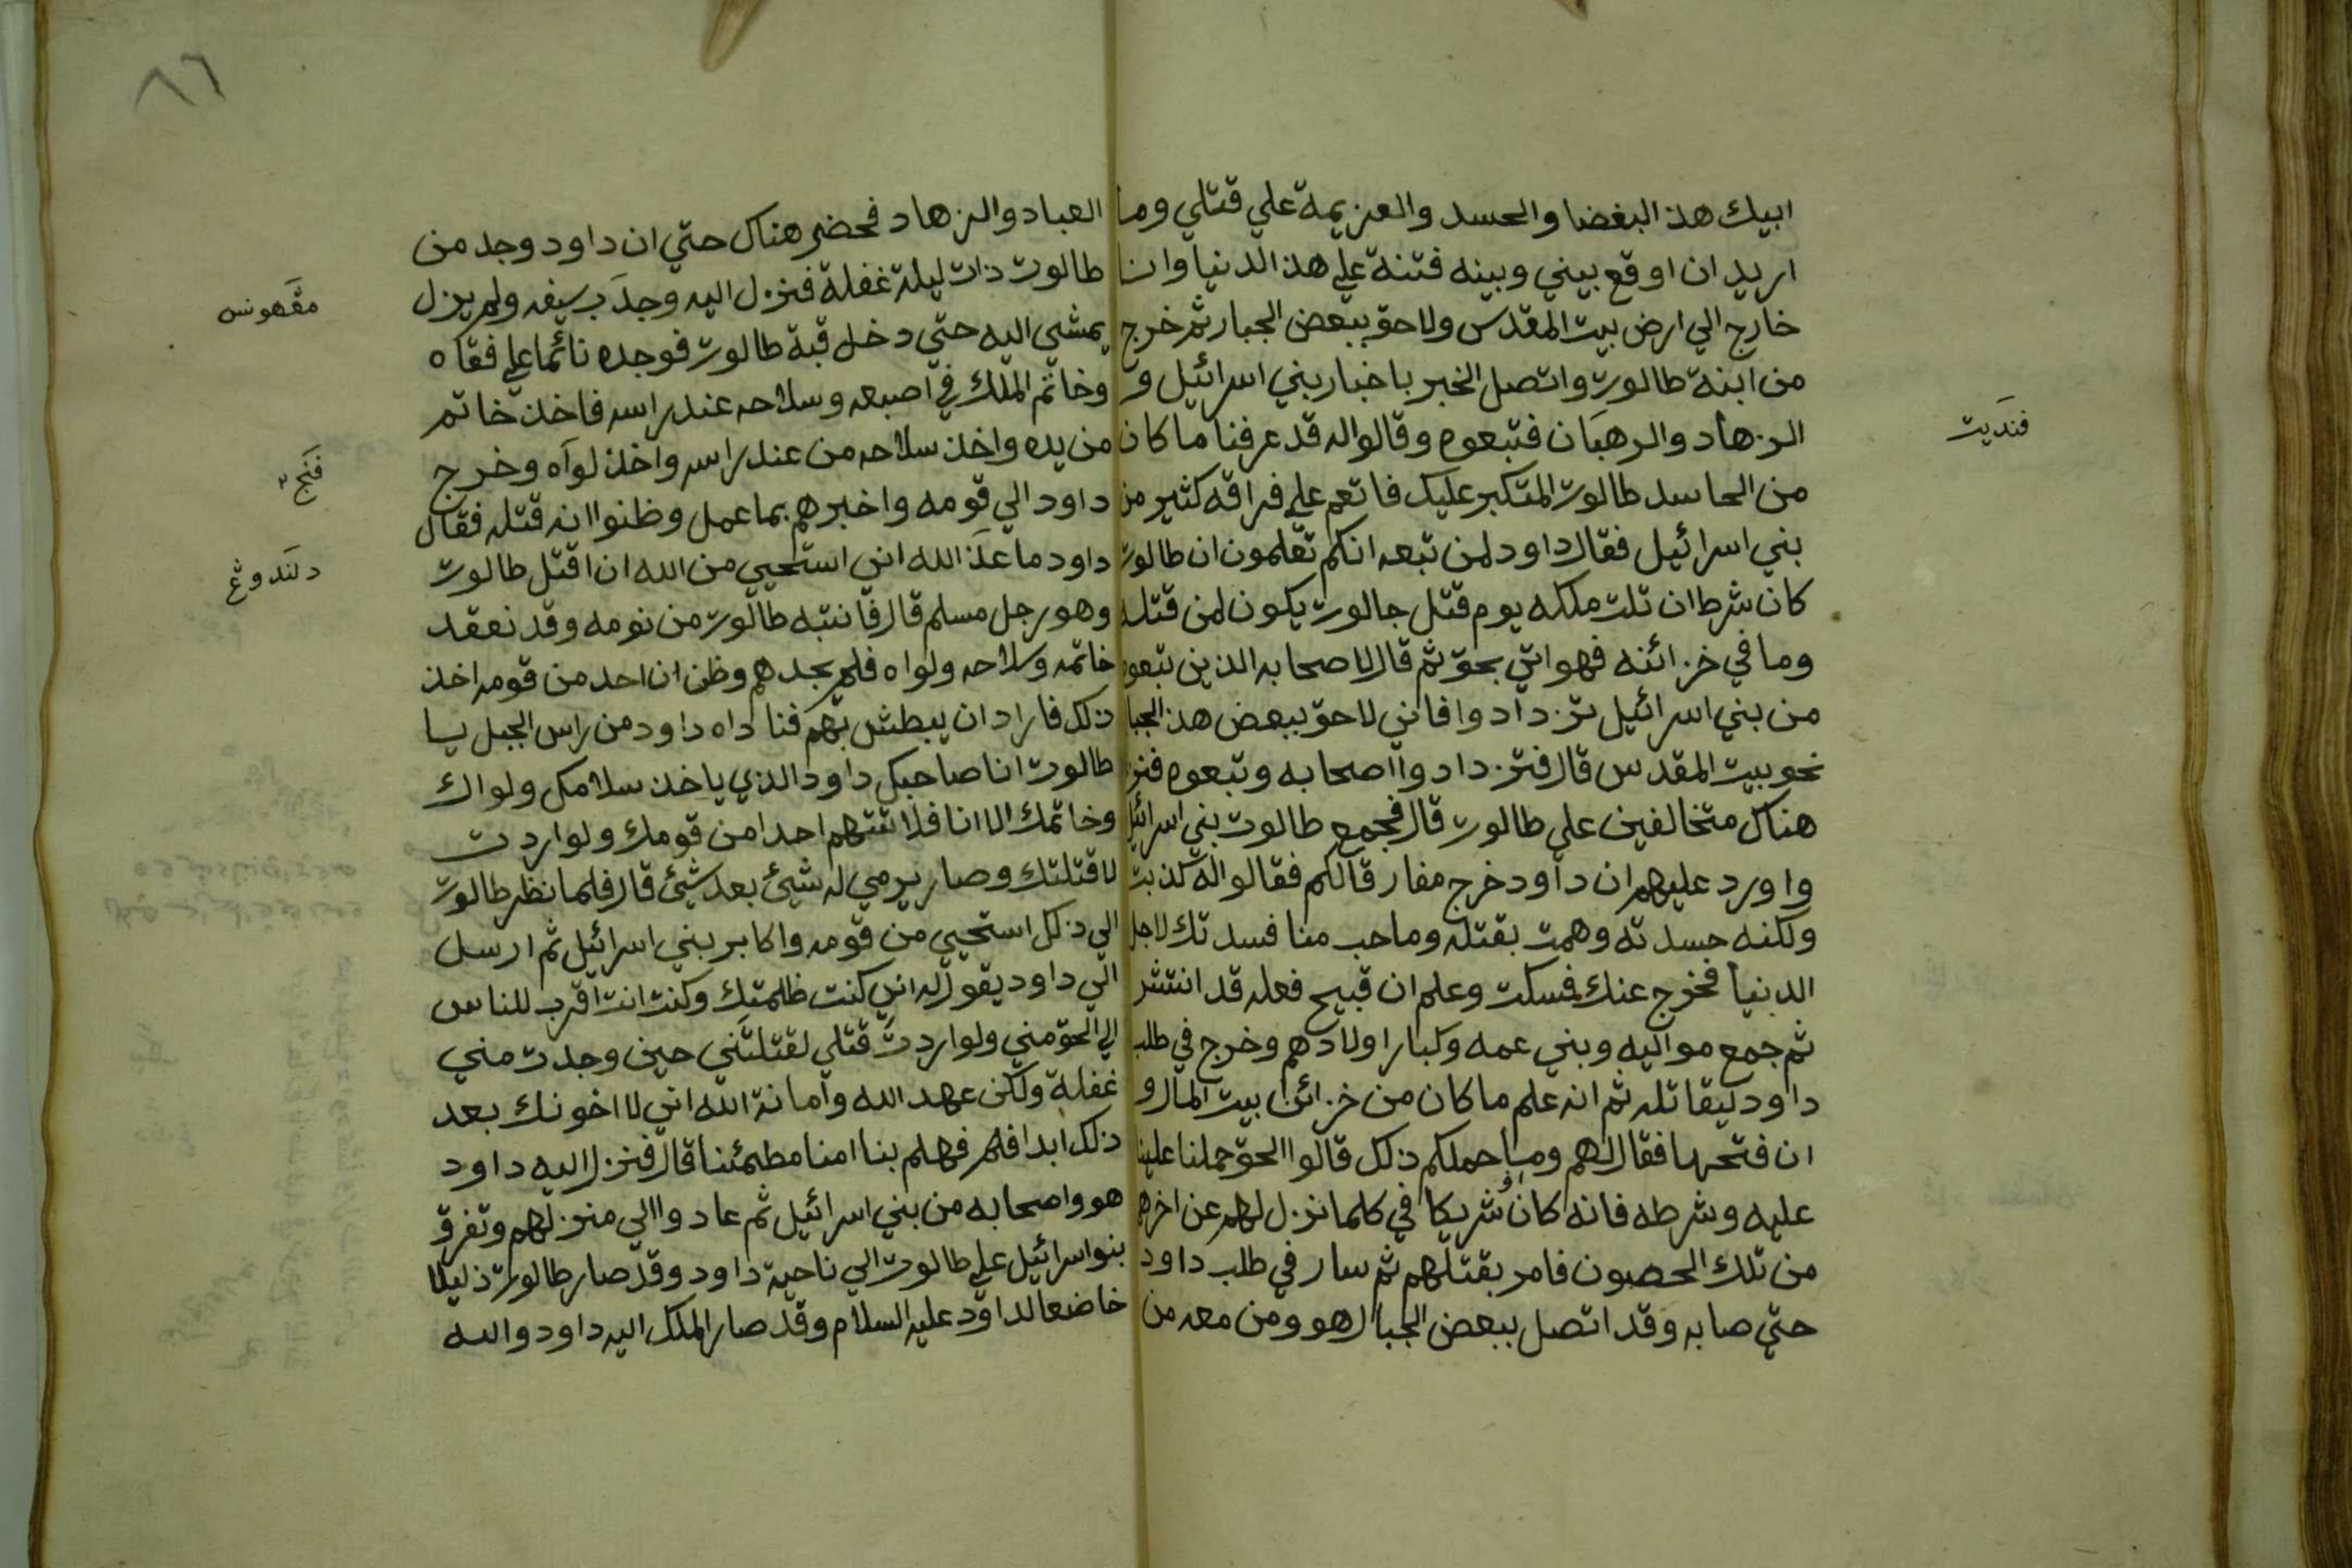 ابيك هذ البغضا والحسد والعزيمة علي قتلي وما
اريد ان اوقع بيني وبينه فتنة علي هذ الدنيا وانا
خارج الي ارض بيت المقدس ولاحق ببعض الجبار ثم خرج
من ابنة طالوت واتصل الخبر باخبار بني اسرائيل و
الزهاد والرهبان فتبعوه وقالوا له قد عرفنا ما كان
من الحاسد طالوت المتكبر عليك فاتعم علي فراقه كثير من
بني اسرائيل فقال داود لمن تبعه انكم تعلمون ان طالوت
كان شرط ان تلت ملكه يوم قتل جالوت يكون لمن قتله
وما في خزائنه فهو اتي بحق ثم قال لاصحابه الذين تبعوه
من بني اسرائيل تزدادوا فاني لاحق ببعض هذ الجبا
نحو بيت المقدس قال فتزدادوا اصحابه وتبعوه فنز
هناك متخالفين علي طالوت قال فجمع طالوت بني اسرائيل
واورد عليهم ان داود خرج مفارقا لكم فقالوا له كذبت
ولكنه حسدته وهمت بقتله وما حب منا فسدتك لاجل
الدنيا فخرج عنك فسكت وعلم ان قبيح فعله قد انتثر
ثم جمع مواليه وبني عمه وكبارا اولادهم وخرج في طلب
داود ليقاتله ثم انه علم ما كان من خزائن بيت المال و
ان فتحها فقال لهم وما حملكم ذلك قالوا الحق حملنا علينا
عليه وشرطه فانه كان شريكا في كلما نزل لهم عن اخرهم
من تلك الحصون فامر بقتلهم ثم سار في طلب داود
حتي صابه وقد اتصل ببعض الجبال هو ومن معه من
فندَيت
٨٦
العباد والزهاد فحضر هناك حتي ان داود وجد من
طالوت ذات ليلة غفلة فنزل اليه وجدَب سيفه ولم يزل
يمشي اليه حتي دخل قبة طالوت فوجده نائما علي فقاه
وخاتم الملك في اصبعه وسلاحه عند راسه فاخذ خاتم
من يده واخذ سلاحه من عند راسه واخذ لواه وخرج
داود الي قومه واخبرهم بما عمل وظنوا انه قتله فقال
داود ما عذَ الله اني استحيي من الله ان اقتل طالوت
وهو رجل مسلم قال فانتبه طالوت من نومه وقد نعقد
خاتمه وسلاحه ولواه فلم يجدهم وظن ان احد من قومه اخذ
ذلك فاراد ان يبطش بهم فنا داه داود من راس الجبل يا
طالوت انا صاحبك داود الذي ياخذ سلامك ولواك
وخاتمك الا انا فلا تتهم احدا من قومك ولو اردت
لا قتلتك وصار يرمي له شيئ بعد شيئ قال فلما نظر طالوت
الي ذلك استحيي من قومه واكابر بني اسرائيل ثم ارسل
الي داود يقول له اني كنت ظلمتك وكنت انت اقرب للناس
الي الحق مني ولو اردت قتلي لقتلتَني حين وجدت مني
غفلة ولكن عهد الله وامانة الله اني لا اخونك بعد
ذلك ابدا فلم فهلم بنا امنا مطمئنا قال فنزل اليه داود
هو واصحابه من بني اسرائيل ثم عادوا الي منزلهم وتفرق
بنوا اسرائيل علي طالوت الي ناحية داود وقد صار طالوت ذليلا
خاضعا لداود عليه السلام وقد صار الملك اليه داود والله
مڠَهونس
فَنجڠ٢
دلندوڠ